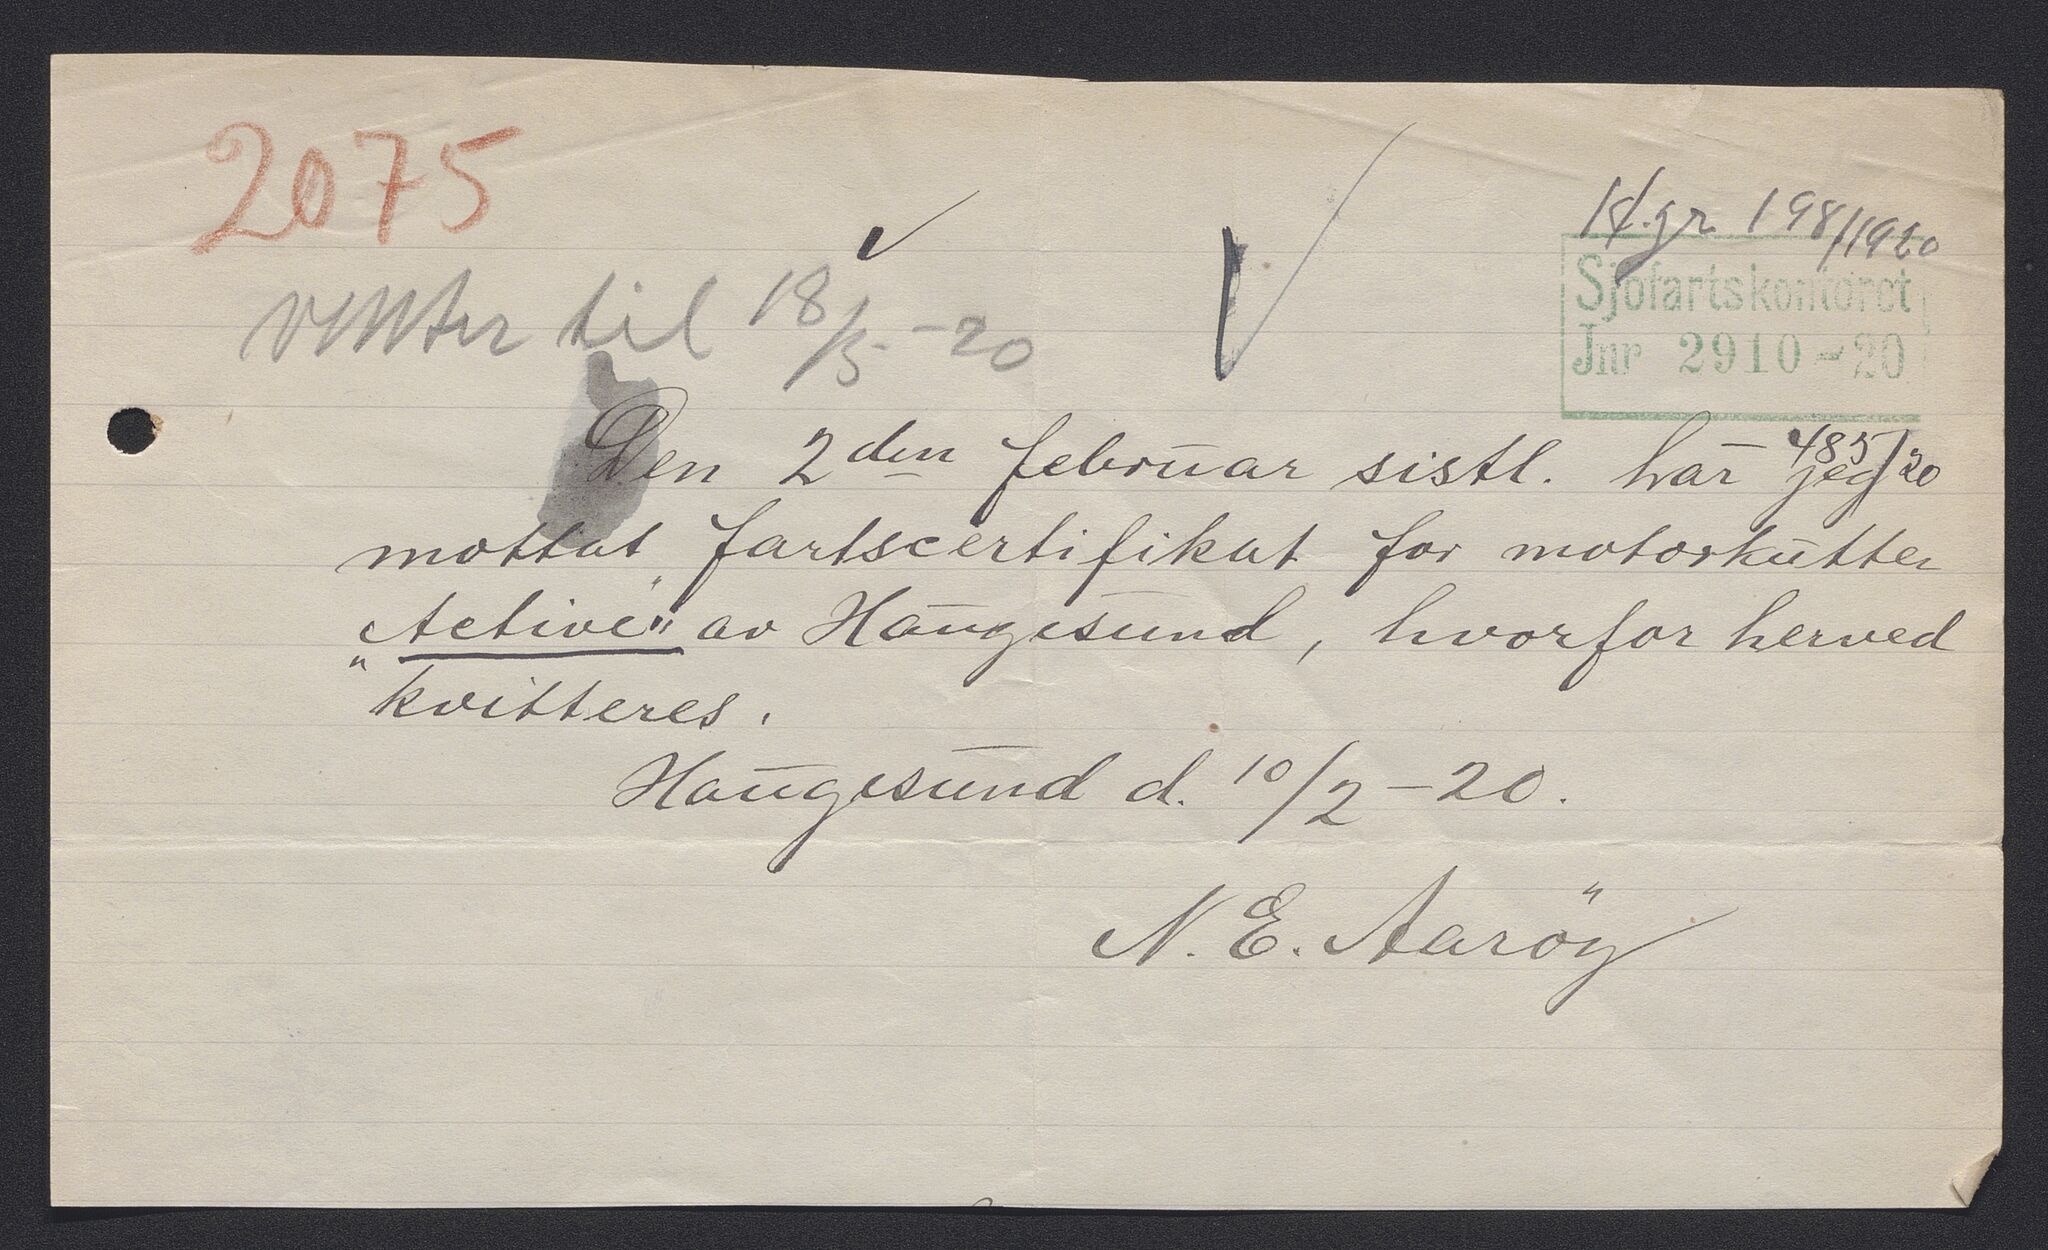 2075
venter til 18/5-20
198/1920
Sjøfartskontoret
Jnr 2910-20
485/20
Den 2den februar sistl. har jeg
mottat fartscertifikat for motorkutter
"Active" av Haugesund, hvorfor herved
kvitteres.
Haugesund d. 10/2-20.
N. E. Aaröy